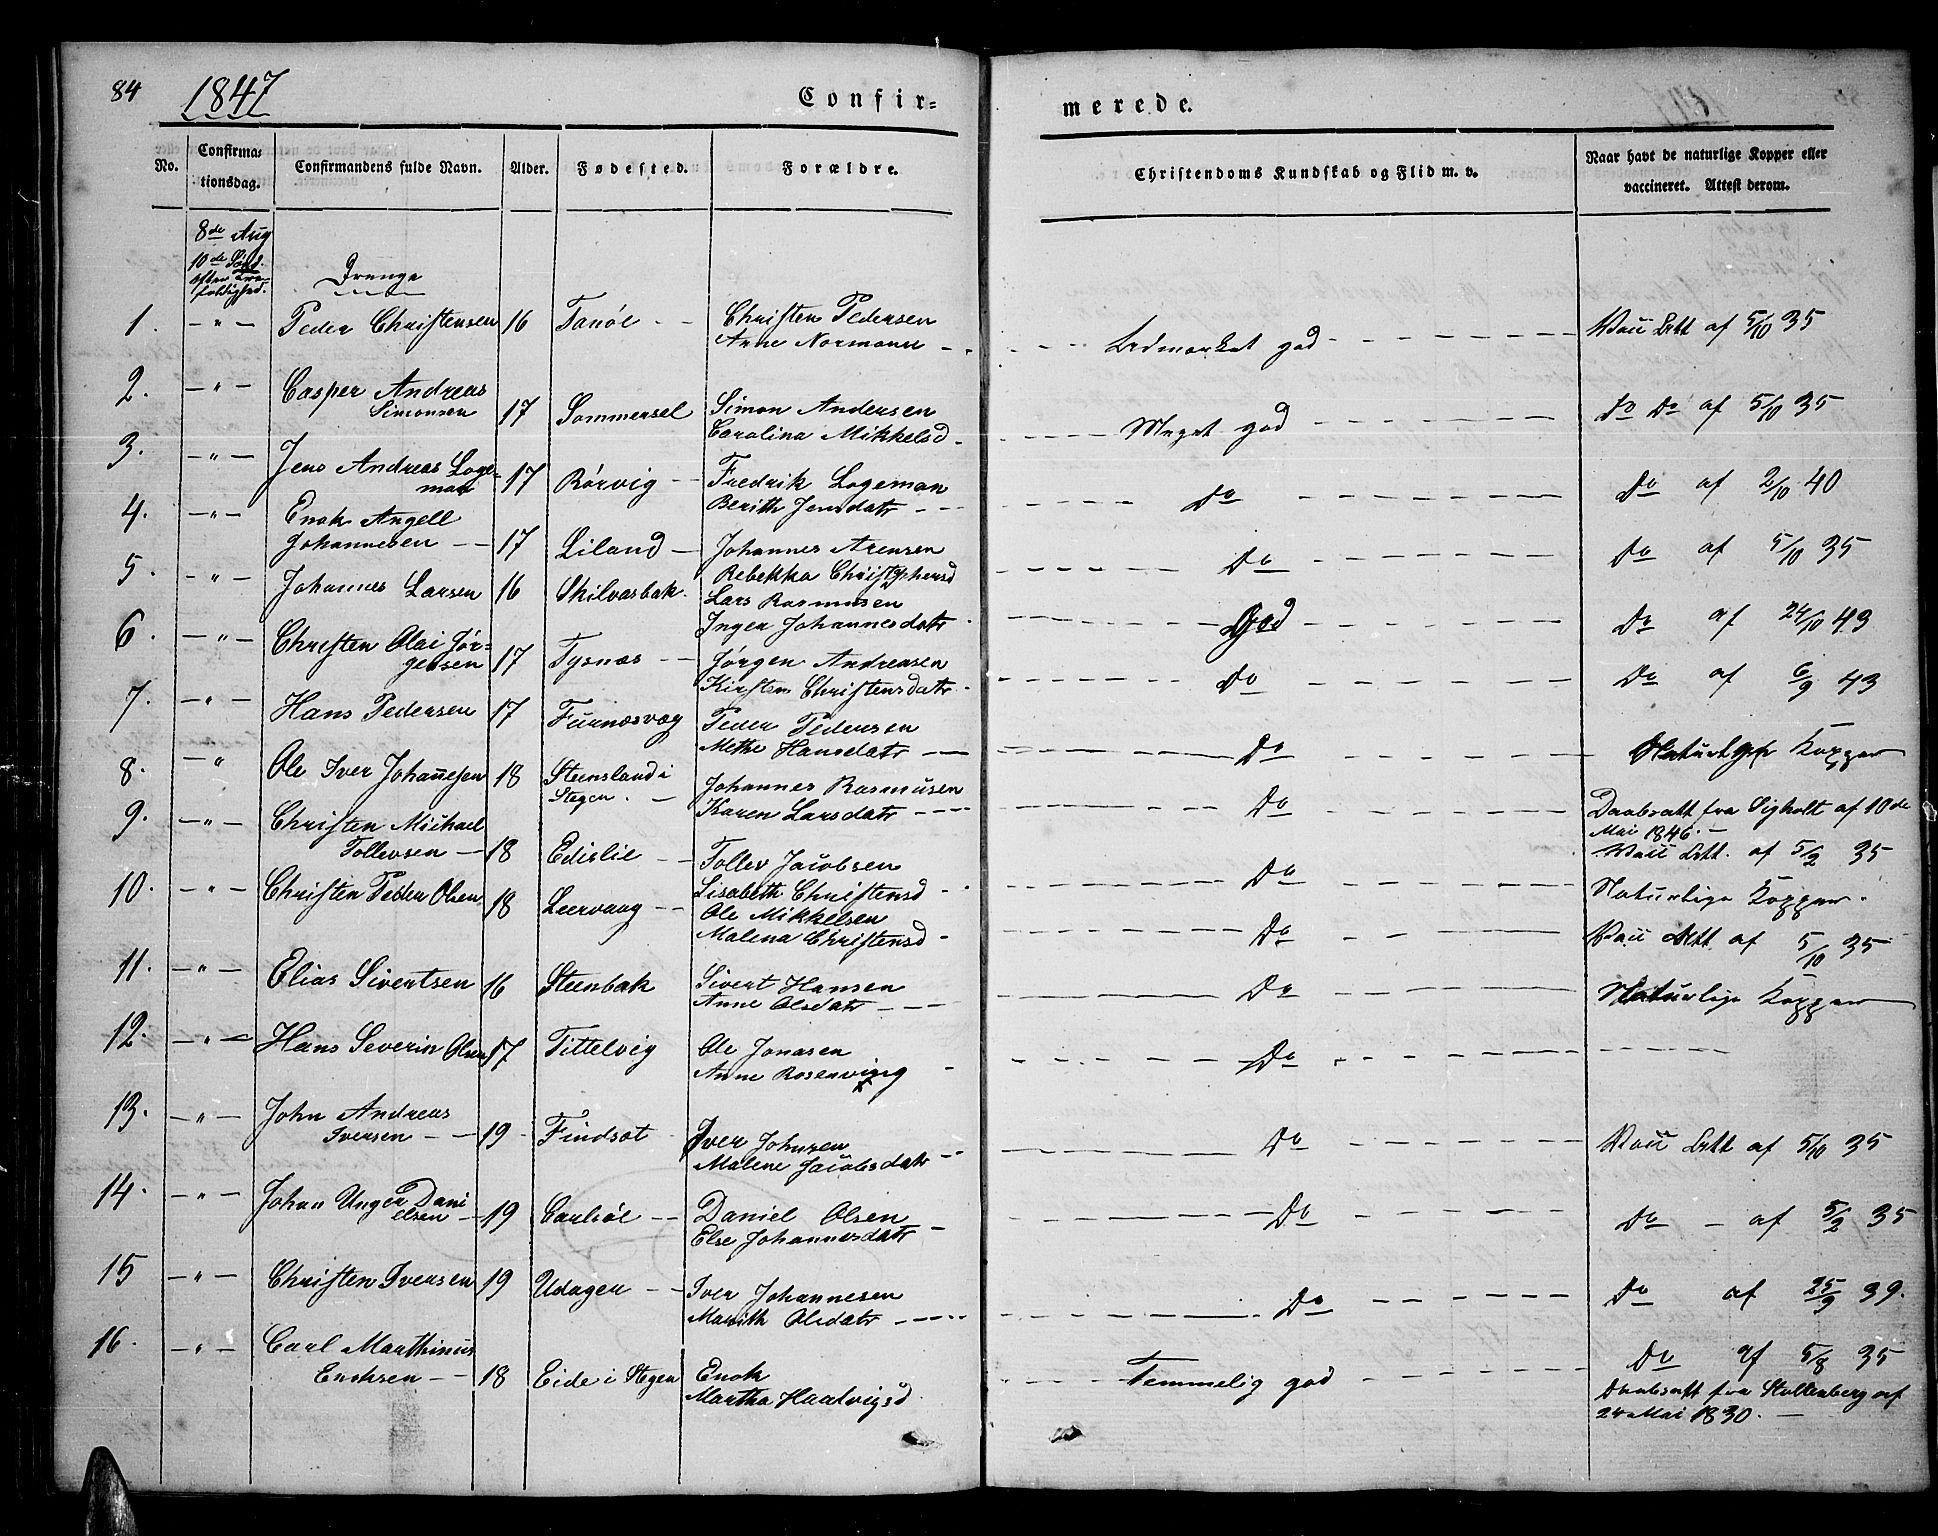 84 1847 Confir= merede.
No. Confirma= tionsdag. Confirmandens fulde Navn. Alder. Fødested. Forældre. Christendoms Kundskab og Flid m. v. Naar havt de naturlige Kopper eller vaccineret. Attest derom.
8de Aug
10de Sønd.
efter Tre-
foldighed. Drenge
1. -"- Peder Christensen 16 Tanøe Christen Pedersen
Anne Normann Udmærket god Vacc Att af 5/10 35
2. -"- Casper Andreas
Simonsen 17 Sommersel Simon Andersen
Carolina Mikkelsd Meget god Do Do af 5/10 35
3. -"- Jens Andreas Loge-
man 17 Rørvig Fredrik Logeman
Berith Jensdatr Do Do af 2/10 40
4. -"- Enok Angell
Johannesen 17 Liland Johannes Arensen
Rebekka Christophersd Do Do af 5/10 35
5. -"- Johannes Larsen 16 Skilvasbak Lars Rasmusen
Inger Johannesdatr God Do af 24/10 43
6. -"- Christen Olai Jør=
gensen 17 Tysnæs Jørgen Andreasen
Kirsten Christensdatr Do Do af 6/9 43
7. -"- Hans Pedersen 17 Furnæsvæg Peder Pedersen
Methe Hansdatr Do Naturlige Kopper
8. -"- Ole Iver Johanesen 18 Steensland i
Stegen Johannes Rasmusen
Karen Larsdatr Do Daabsatt fra Sigholt af 10de
Mai 1846.
9. -"- Christen Michael
Tollevsen 18 Edislie Tollev Jacobsen
Lisabeth Christensd Do Vacc Att. af 5/2 35
10. -"- Christen Peder Olsen 18 Leervaag Ole Mikkelsen
Malena Christensd Do Naturlige Kopper.
Vacc Att af 5/10 35
11. -"- Elias Sivertsen 16 Steenbak Sivert Hansen
Anne Olsdatr Do Naturlige Kopper
12. -"- Hans Severin Olsen 17 Tittelvig Ole Jonasen
Anne Rosenving Do
13. -"- John Andreas
Iversen 19 Findsæt Iver Johnsen
Malene Jacobsdatr Do Vacc Att af 5/10 35
14. -"- Johan Unger Dani
elsen 19 Carlsøe Daniel Olsen
Else Johannesdatr Do Do af 5/2 35
15 -"- Christen Iversen 19 Udager Iver Johannesen
Marith Olsdatr Do Do af 25/9 39.
16. -"- Carl Marthinus
Enoksen 18 Eide i Stegen Enok
Martha Haatvigsd Temmelig god Do af 5/8 35
Daabsatt fra Stoltenberg af
24 Mai 1830.